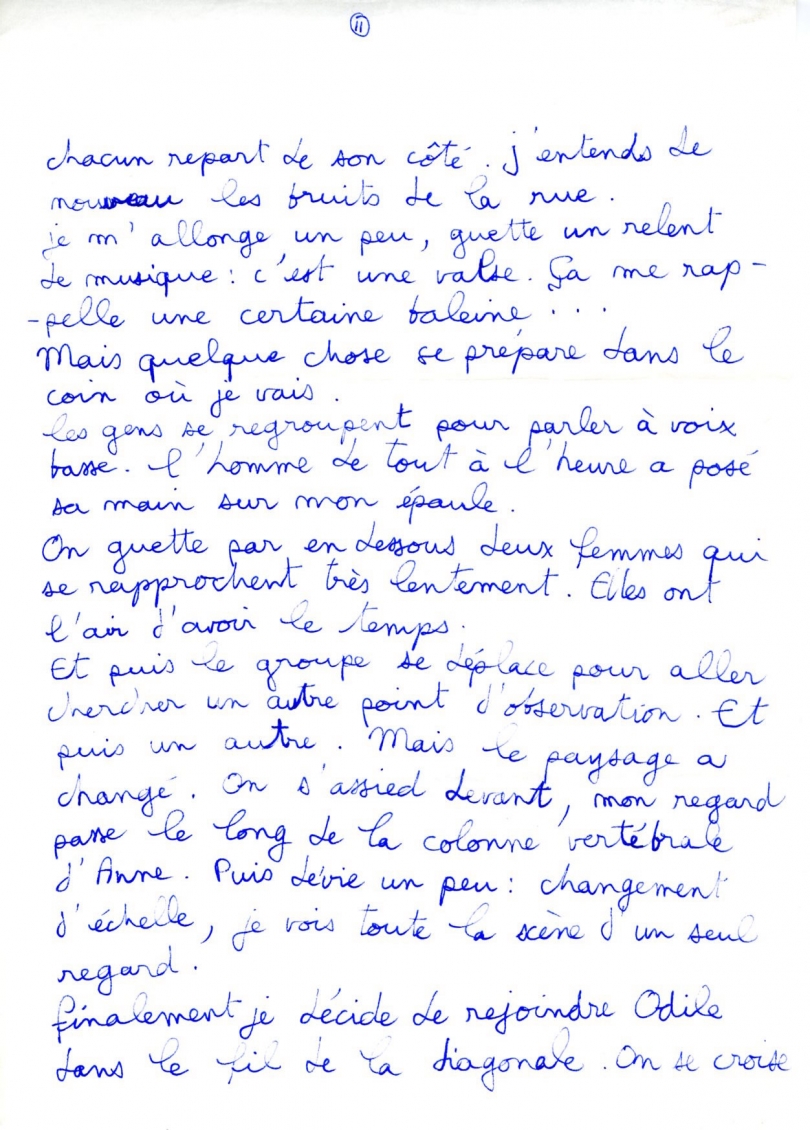 11
chacun repart de son côté. j'entends de
nouveau les bruits de la rue.
je m'allonge un peu, guette un relent
de musique : c'est une valse. Ça me rap-
-pelle une certaine baleine...
Mais quelque chose se prépare dans le
coin où je vais.
les gens se regroupent pour parler à voix
basse. l'homme de tout à l'heure a posé
sa main sur mon épaule.
On guette par en dessous deux femmes qui
se rapprochent très lentement. Elles ont
l'air d'avoir le temps.
Et puis le groupe se déplace pour aller
chercher un autre point d'observation. Et
puis un autre. Mais le paysage a
changé. On s'assied devant, mon regard
passe le long de la colonne vertébrale
d'Anne. Puis dévie un peu : changement
d'échelle, je vois toute la scène d'un seul
regard.
finalement je décide de rejoindre Odile
dans le fil de la diagonale. On se croise